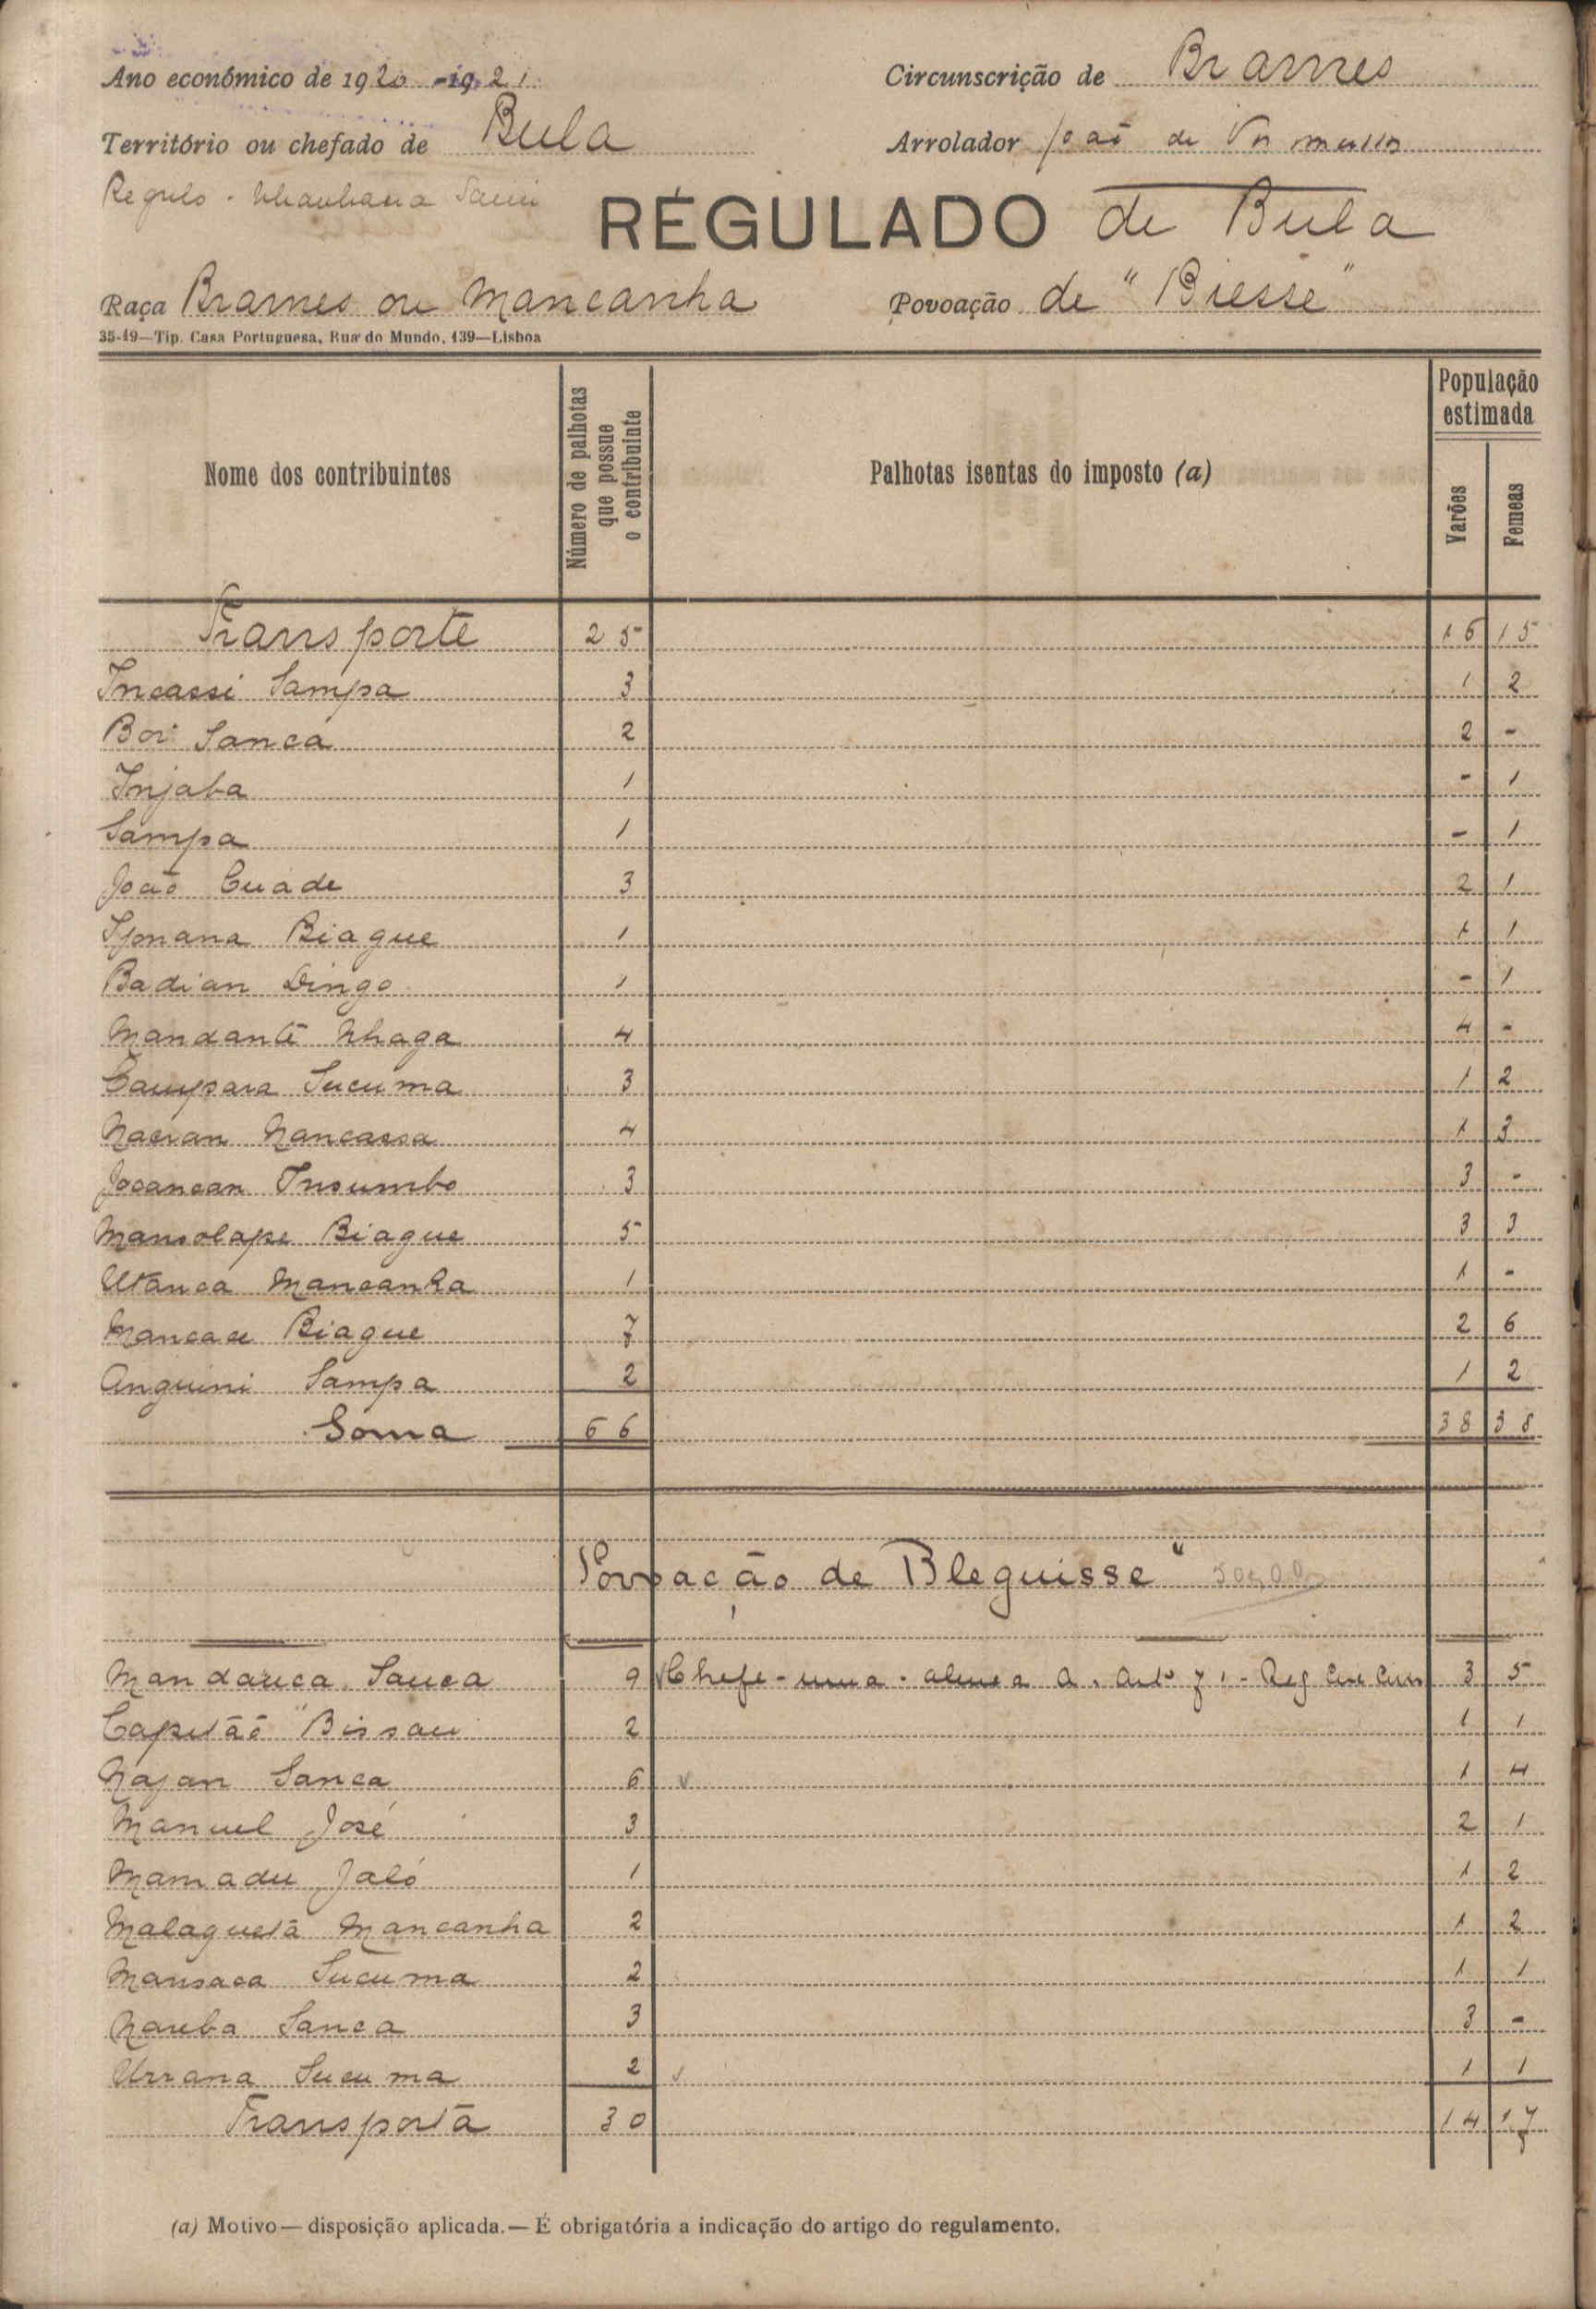 Ano económico de 1920-1921
Circunscrição de Brames
Território ou chefado de Bula
Arrolador João de
Regulo -
REGULADO de Bula
Raça Brames ou Mancanha
Povoação de "Biesse"
35-19—Tip. Casa Portuguesa, Rua do Mundo, 139—Lisboa
Nome dos contribuintes
Número de palhotas que possue o contribuinte
Palhotas isentas do imposto (a)
População estimada
Varões
Femeas
Transporte 25 16 15
Incassi Sampa 3 1 2
Boi Sanca 2 2 -
Injaba 1 - 1
Sampa 1 - 1
João Cuade 3 2 1
Biague 1 1 1
Badian Dingo 1 - 1
Mandantē Nhaga 4 4 -
Campara Sucuma 3 1 2
Nacran Nancassa 4 1 3
Jocancan Insumbo 3 3 -
Mansolape Biague 5 3 3
Utanca Mancanha 1 1 -
Mancace Biague 7 2 6
Anguini Sampa 2 1 2
Soma 66 38 38
Povoação de Bleguisse"
Mandauca Sanca 9 Chefe - uma - alinea a. artº 7º - Reg 3 5
Capitão Bissau 2 1 1
Najan Sanca 6 v 1 4
Manuel José 3 2 1
Mamadu Jaló 1 1 2
Malaguetā Mancanha 2 1 2
Mansaca Sucuma 2 1 1
Nareba Sanca 3 3 -
Urrana Sucuma 2 v 1 1
Transportā 30 14 17
(a) Motivo—disposição aplicada.—É obrigatória a indicação do artigo do regulamento.